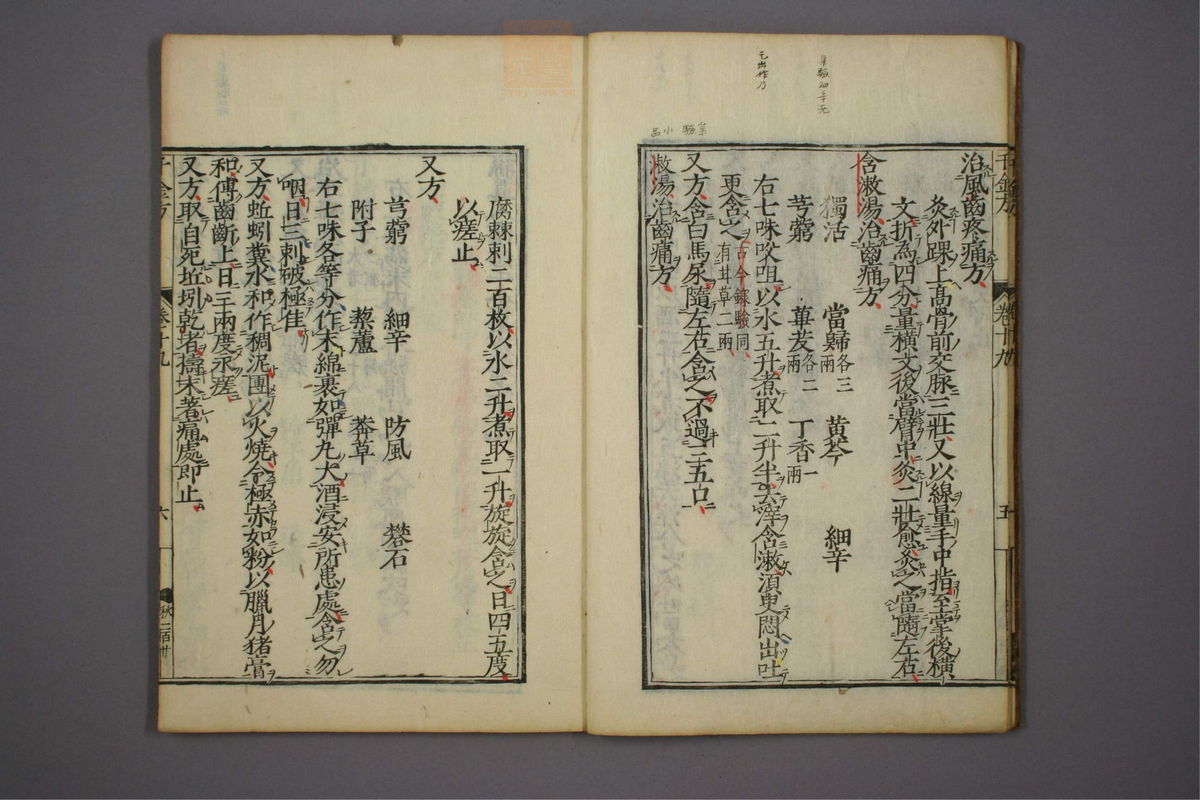 治風齒疼痛方
灸外踝上高骨前交脉三壯又以線量手中指至掌後橫
文折為四分量橫文後當臂中灸二壯愈灸之當隨左右
含漱湯治齒痛方
獨活 當歸各三兩 黃芩 細辛
芎藭 蓽茇各二兩 丁香一兩
右七味㕮咀以水五升煮取二升半去滓含漱湏更悶出吐
更含之古今錄驗同有甘草二兩
又方含白馬尿隨左右含之不過三五口
漱湯治齒痛方
腐棘刺二百枚以水二升煮取一升旋旋含之日四五度
以瘥止
又方
芎藭 細辛 防風 礬石
附子 藜蘆 莽草
右七味各等分作末綿裹如彈丸大酒浸安所患處含之勿
咽日三刺破極佳
又方蚯蚓糞水和作稠泥團以火燒令極赤如粉以臘月猪膏
和傅齒齗上日三兩度永瘥
又方取自死蚯蚓乾者擣末著痛處即止
千金方
卷十九
五
六